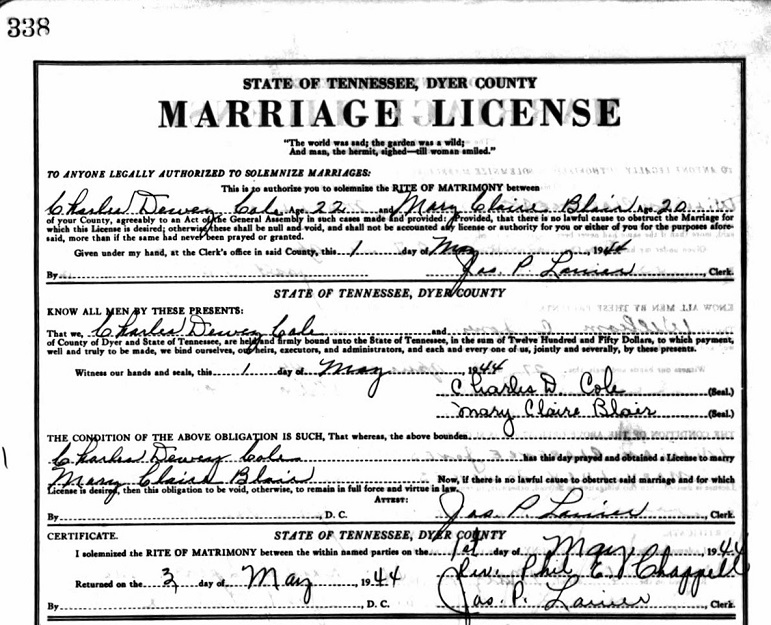 338
STATE OF TENNESSEE, DYER COUNTY
MARRIAGE LICENSE
"The world was sad; the garden was a wild;
And man, the hermit, sighed—till woman smiled."
TO ANYONE LEGALLY AUTHORIZED TO SOLEMNIZE MARRIAGES:
This is to authorize you to solemnize the RITE OF MATRIMONY between
Charles Dewey Cole Age 22 and Mary Claire Blair Age 20
of your County, agreeably to an Act of the General Assembly in such cases made and provided; Provided, that there is no lawful cause to obstruct the Marriage for
which this License is desired; otherwise these shall be null and void, and shall not be accounted any license or authority for you or either of you for the purposes afore-
said, more than if the same had never been prayed or granted.
Given under my hand, at the Clerk's office in said County, this 1 day of May, 1944
By Jas. P. Lanier, Clerk.
STATE OF TENNESSEE, DYER COUNTY
KNOW ALL MEN BY THESE PRESENTS:
That we, Charles Dewey Cole and
of County of Dyer and State of Tennessee, are held and firmly bound unto the State of Tennessee, in the sum of Twelve Hundred and Fifty Dollars, to which payment,
well and truly to be made, we bind ourselves, our heirs, executors, and administrators, and each and every one of us, jointly and severally, by these presents.
Witness our hands and seals, this 1 day of May, 1944
Charles D. Cole (Seal.)
Mary Claire Blair (Seal.)
THE CONDITION OF THE ABOVE OBLIGATION IS SUCH, That whereas, the above bounden
Charles Dewey Cole has this day prayed and obtained a License to marry
Mary Claire Blair Now, if there is no lawful cause to obstruct said marriage and for which
License is desired, then this obligation to be void, otherwise, to remain in full force and virtue in law.
ATTEST:
By , D. C. Jas. P. Lanier, Clerk.
CERTIFICATE. STATE OF TENNESSEE, DYER COUNTY
I solemnized the RITE OF MATRIMONY between the within named parties on the 1st day of May, 1944
Rev. Phil E. Chappell
Returned on the 3 day of May, 1944
By , D. C. Jas. P. Lanier Clerk